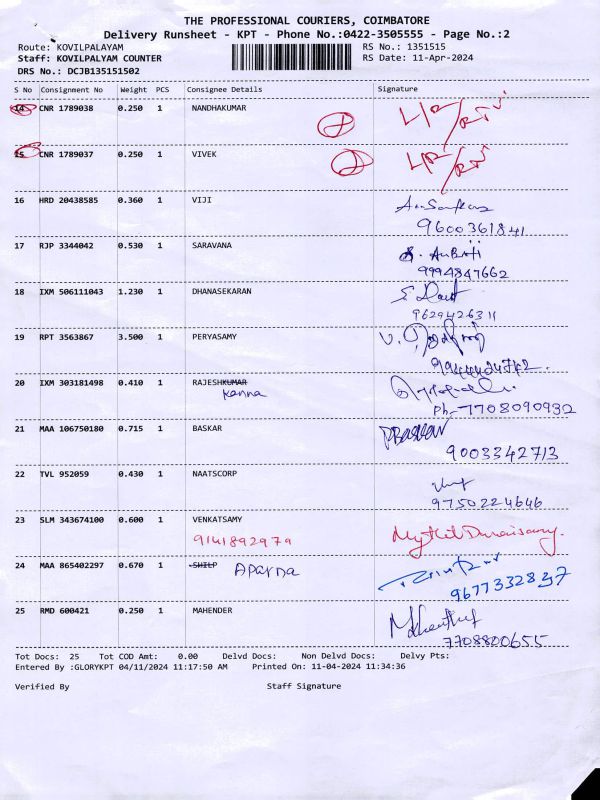 THE PROFESSIONAL COURIERS, COIMBATORE
Delivery Runsheet - KPT - Phone No.:0422-3505555 - Page No.:2
Route: KOVILPALAYAM RS No.: 1351515
Staff: KOVILPALYAM COUNTER RS Date: 11-Apr-2024
DRS No.: DCJB135151502
S No Consignment No Weight PCS Consignee Details Signature
14 CNR 1789038 0.250 1 NANDHAKUMAR
15 CNR 1789037 0.250 1 VIVEK
16 HRD 20438585 0.360 1 VIJI
9600361841
17 RJP 3344042 0.530 1 SARAVANA
9994847662
18 IXM 506111043 1.230 1 DHANASEKARAN
9629426311
19 RPT 3563867 3.500 1 PERYASAMY
9944424742
20 IXM 303181498 0.410 1 RAJESHKUMAR
Kanna
Ph-7708090932
21 MAA 106750180 0.715 1 BASKAR PBaskar
9003342713
22 TVL 952059 0.430 1 NAATSCORP
9750224646
23 SLM 343674100 0.600 1 VENKATSAMY
9141892979 Mythil Duraisamy.
24 MAA 865402297 0.670 1 SHILP Aparna
9677332837
25 RMD 600421 0.250 1 MAHENDER
7708800655
Tot Docs: 25 Tot COD Amt: 0.00 Delvd Docs: Non Delvd Docs: Delvy Pts:
Entered By :GLORYKPT 04/11/2024 11:17:50 AM Printed On: 11-04-2024 11:34:36
Verified By Staff Signature